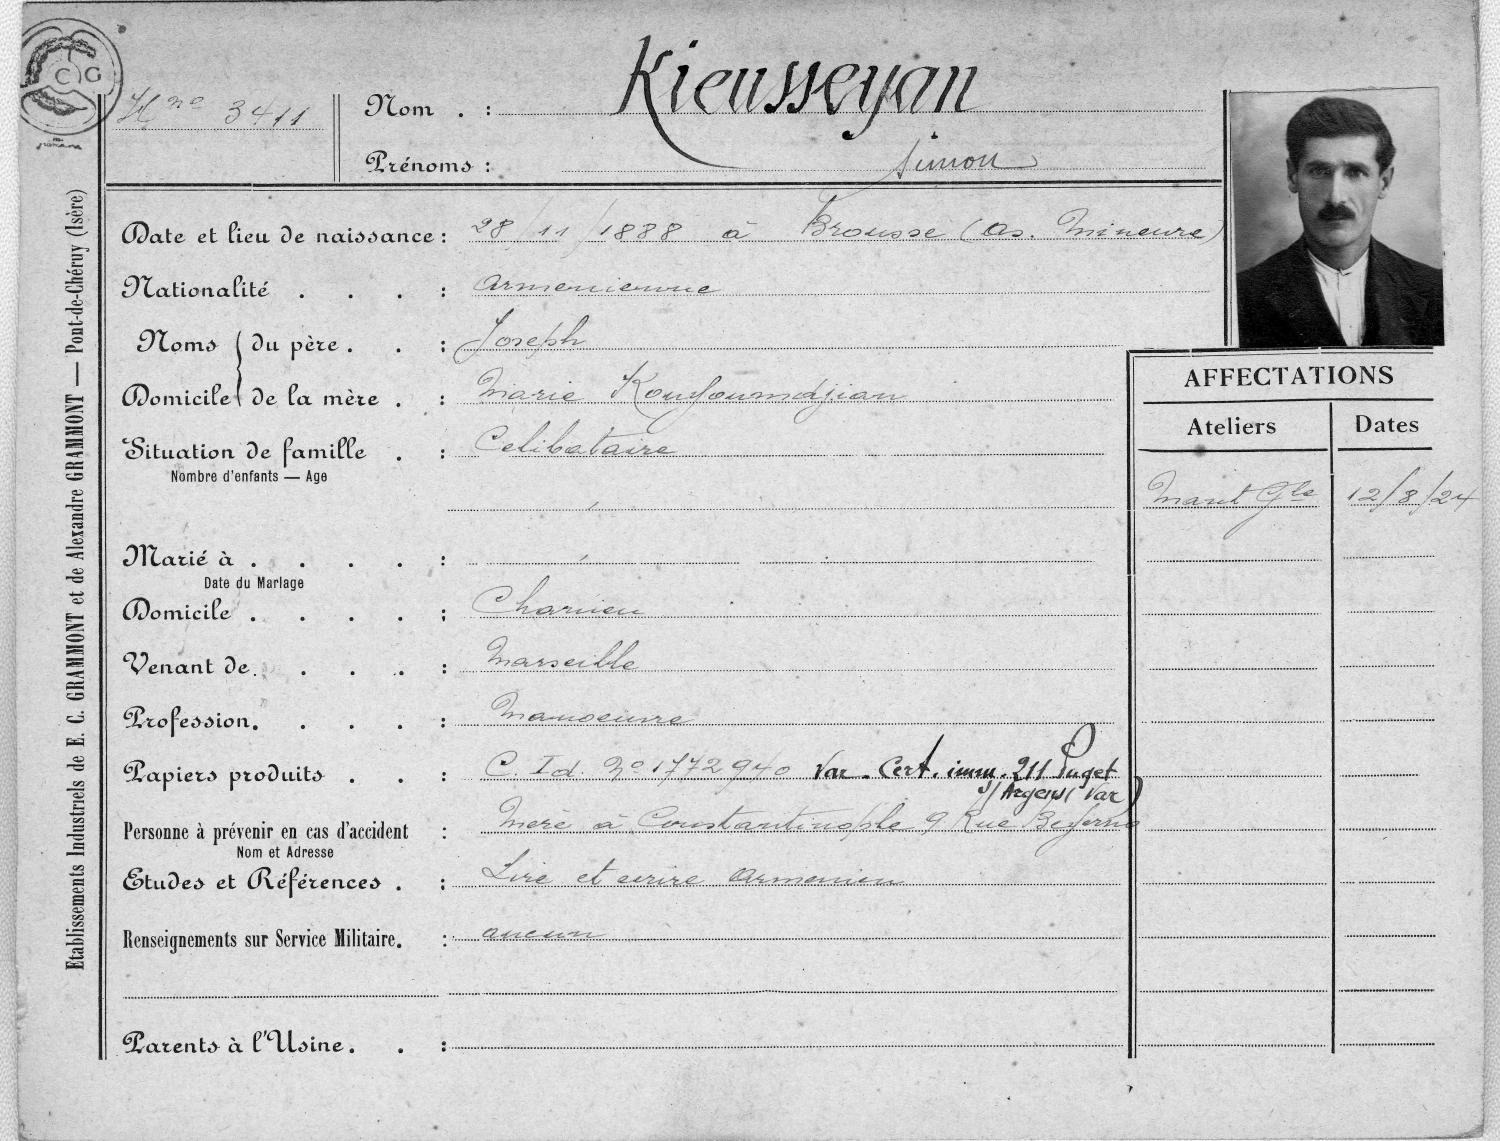 C G
Hne 3411
Nom . : Kieusseyan
Prénoms : Simon
Date et lieu de naissance : 28/11/1888 à Brousse (As. Mineure)
Nationalité . . . : armenienne
Noms du père . . : Joseph
Domicile de la mère . : Marie Kouyoumdjian
Situation de famille . : Celibataire
Nombre d'enfants — Age
Marié à . . . . :
Date du Mariage
Domicile . . . . : Charvieu
Venant de . . . . : Marseille
Profession . . . . : Manoeuvre
Papiers produits . . : C. Id. No 1772940 Var. Cert. imm. 211 Puget
s/Argens (Var)
Personne à prévenir en cas d'accident : Mere à Constantinople 9 Rue
Nom et Adresse
Etudes et Références . : Lire et ecrire Armenien
Renseignements sur Service Militaire. : aucun
Parents à l'Usine . . :
AFFECTATIONS
Ateliers Dates
Manut Gle 12/8/24
Etablissements Industriels de E. C. GRAMMONT et de Alexandre GRAMMONT — Pont-de-Chéruy (Isère)